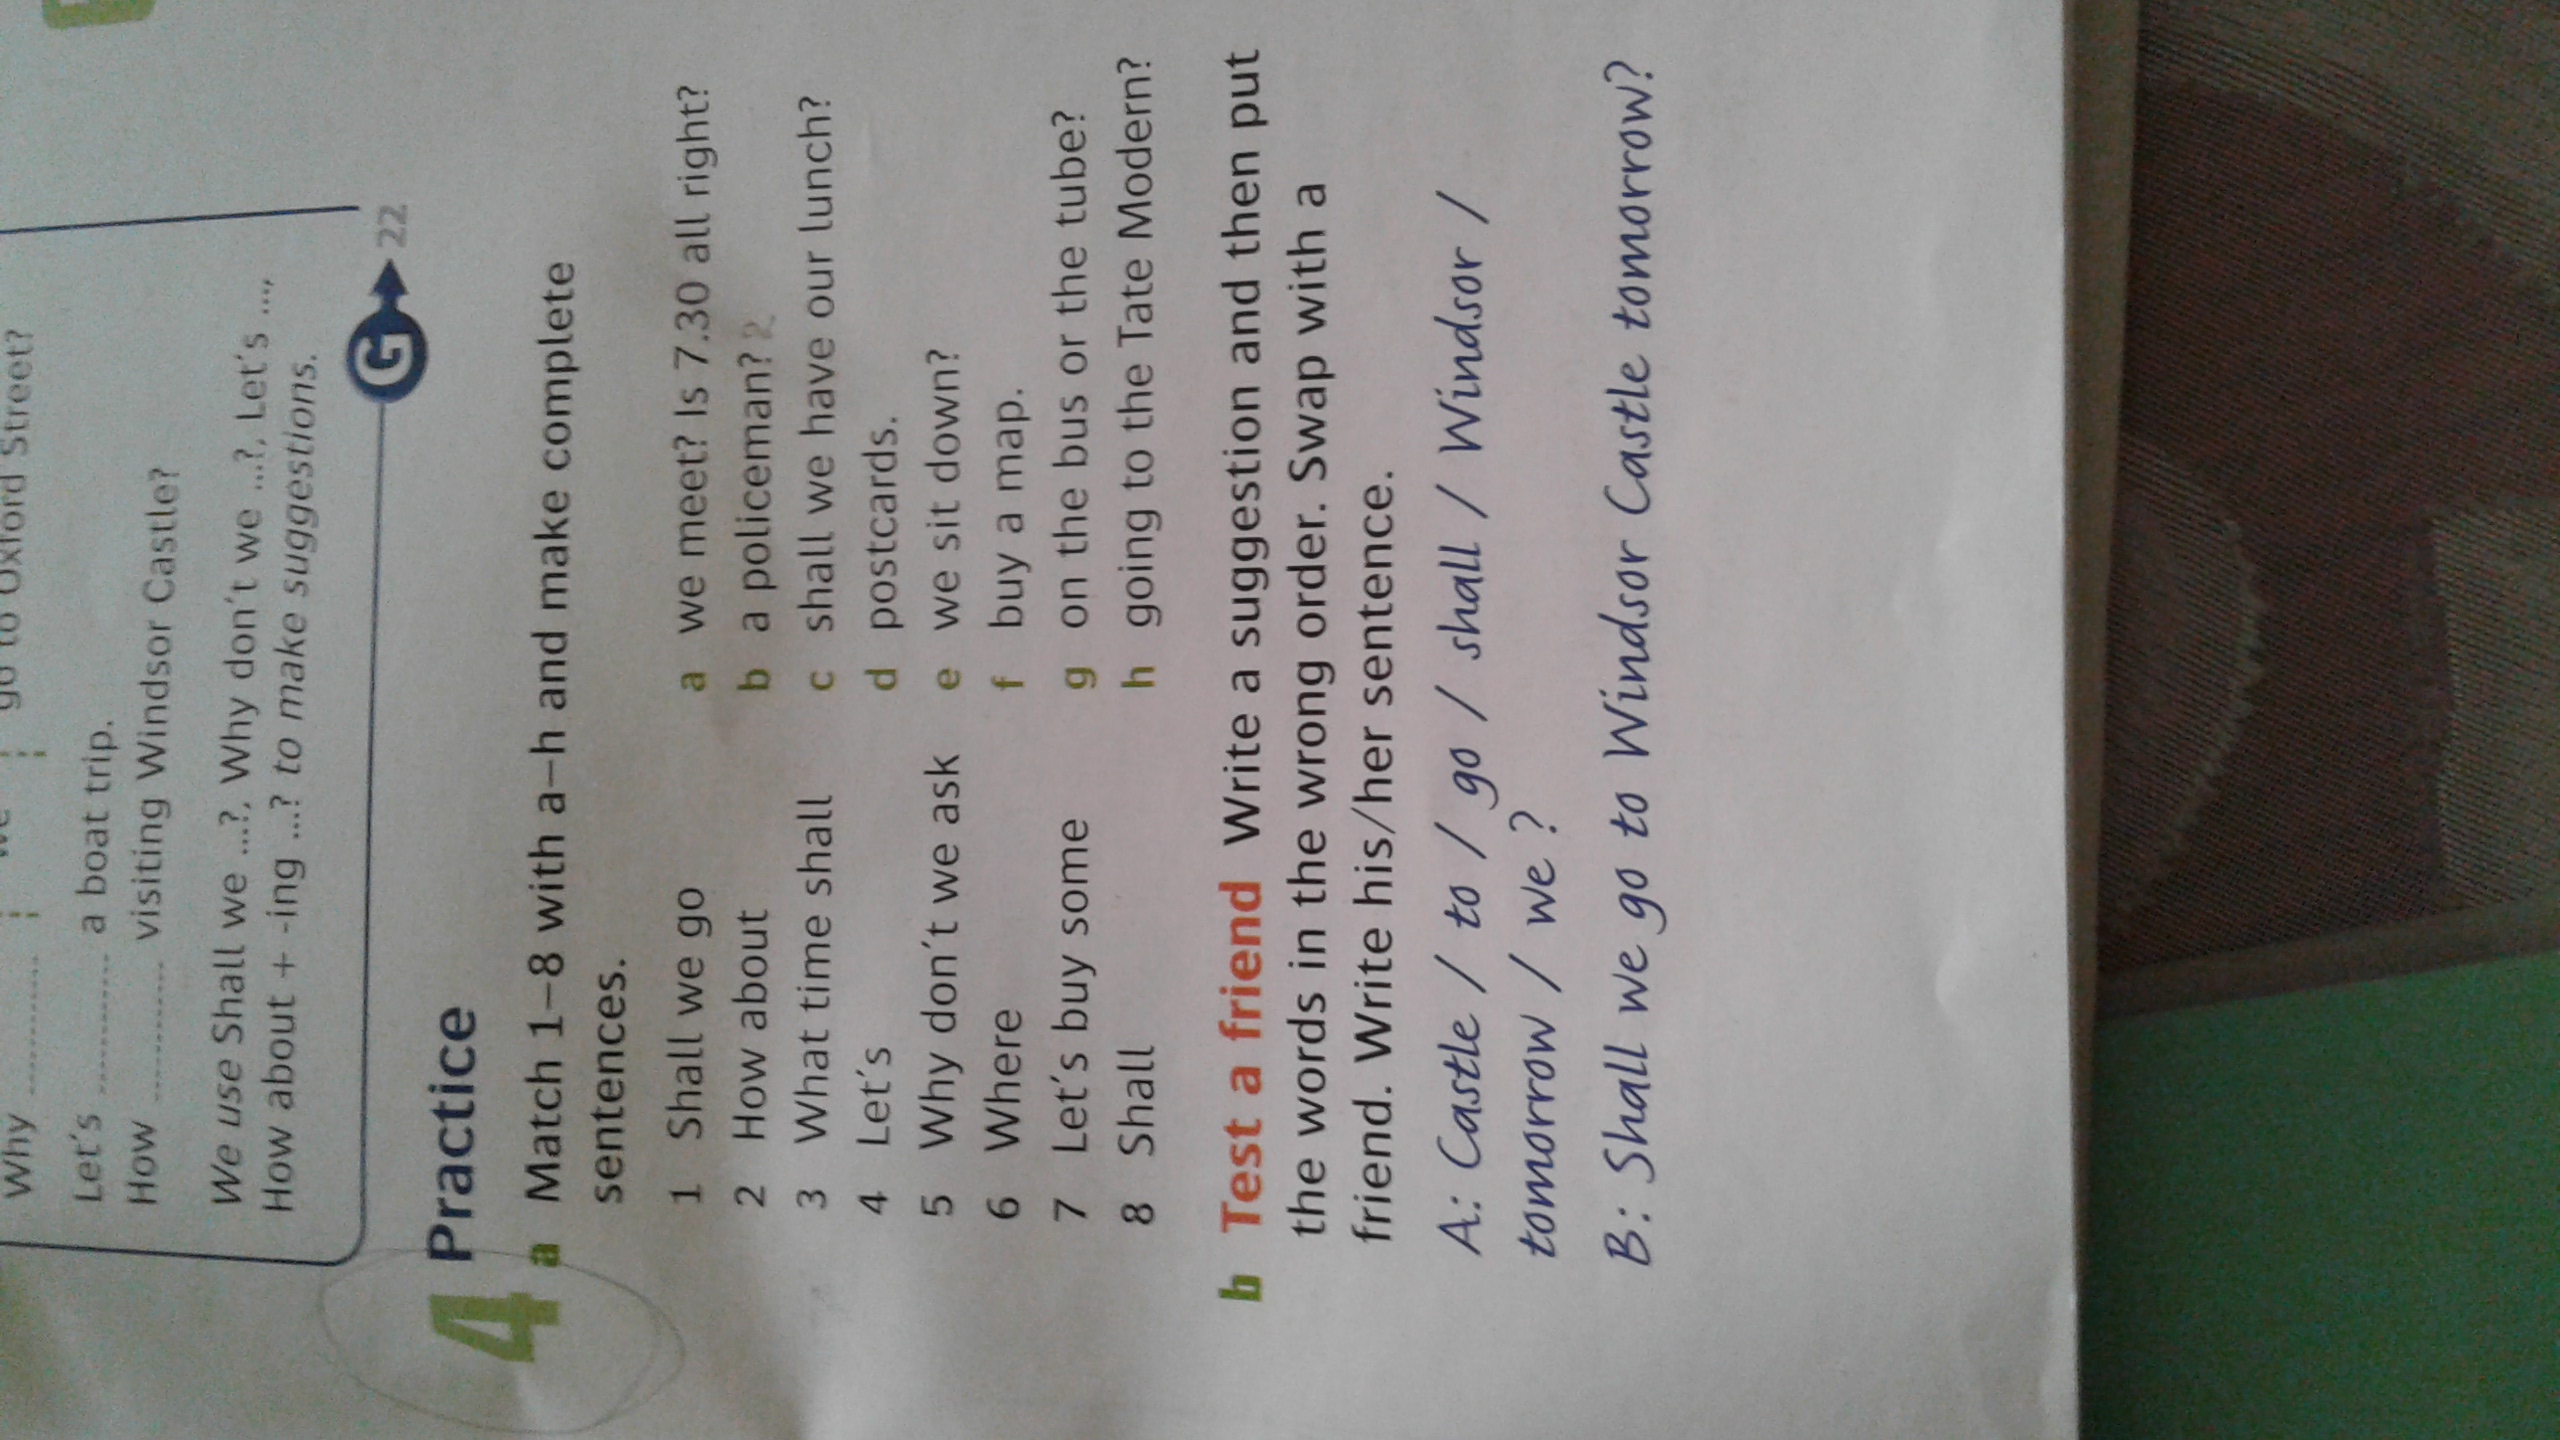 go to Oxford Street?
Why ............
Let's ............ a boat trip.
How ............ visiting Windsor Castle?
We use Shall we ...?, Why don't we ...?, Let's ...,
How about + -ing ...? to make suggestions.
G 22
4 Practice
a Match 1–8 with a–h and make complete
sentences.
1 Shall we go
2 How about
3 What time shall
4 Let's
5 Why don't we ask
6 Where
7 Let's buy some
8 Shall
a we meet? Is 7.30 all right?
b a policeman? 2
c shall we have our lunch?
d postcards.
e we sit down?
f buy a map.
g on the bus or the tube?
h going to the Tate Modern?
b Test a friend Write a suggestion and then put
the words in the wrong order. Swap with a
friend. Write his/her sentence.
A: Castle / to / go / shall / Windsor /
tomorrow / we ?
B: Shall we go to Windsor Castle tomorrow?